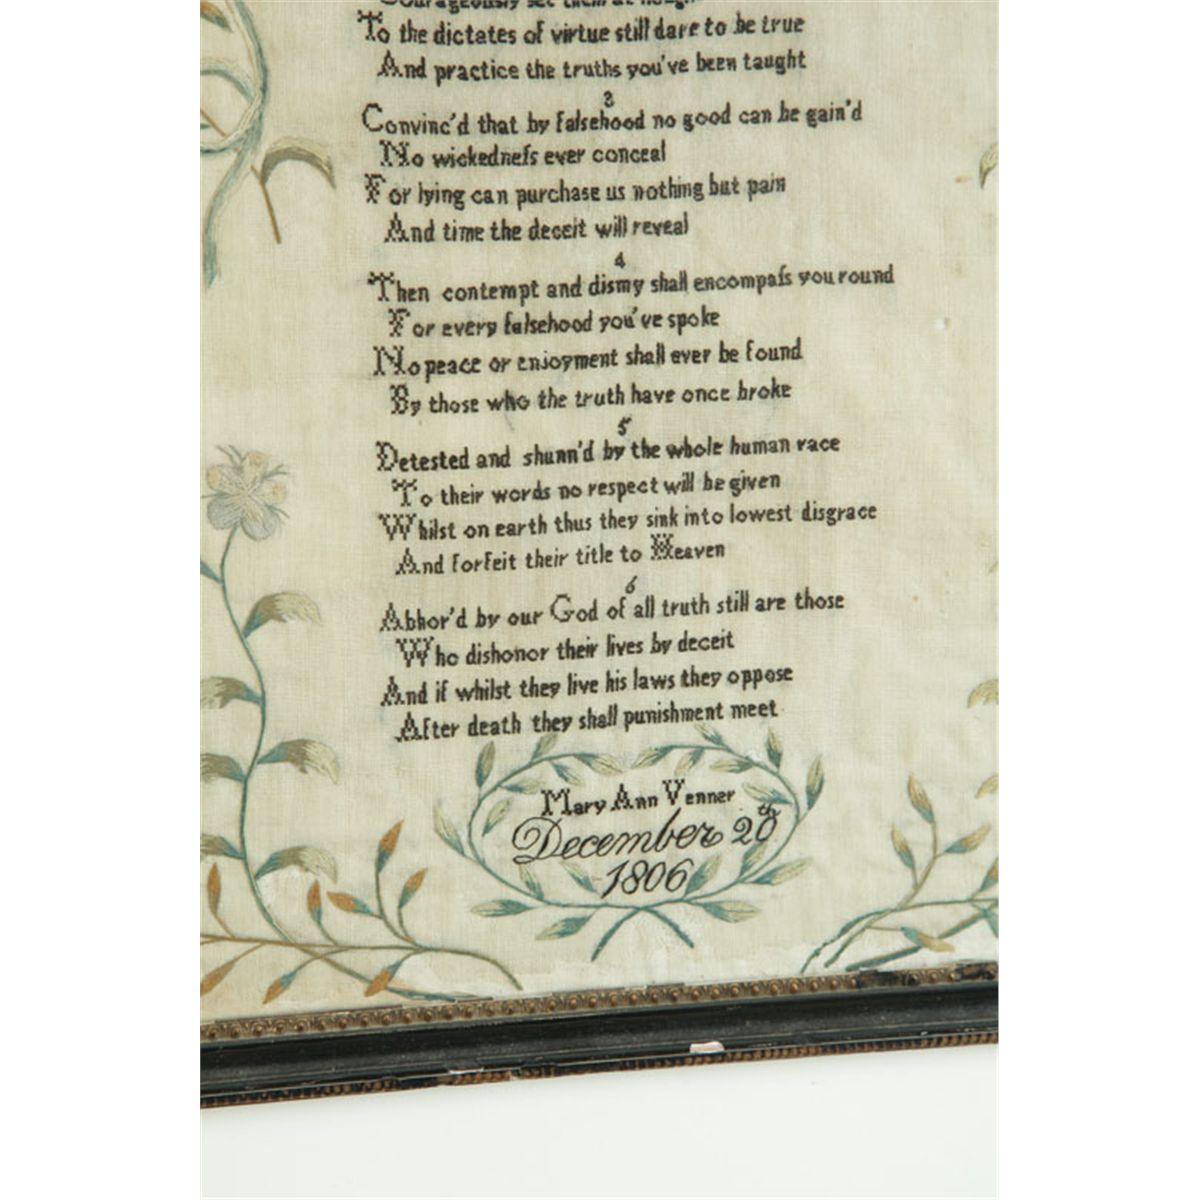 Courageously set them at nough
To the dictates of virtue still dare to be true
And practice the truths you've been taught
3
Convinc'd that by falsehood no good can be gain'd
No wickedneſs ever conceal
For lying can purchase us nothing but pain
And time the deceit will reveal
4
Then contempt and dismy shall encompaſs you round
For every falsehood you've spoke
No peace or enjoyment shall ever be found
By those who the truth have once broke
5
Detested and shunn'd by the whole human race
To their words no respect will be given
Whilst on earth thus they sink into lowest disgrace
And forfeit their title to Heaven
6
Abhor'd by our God of all truth still are those
Who dishonor their lives by deceit
And if whilst they live his laws they oppose
After death they shall punishment meet
Mary Ann Venner
December 20th
1806